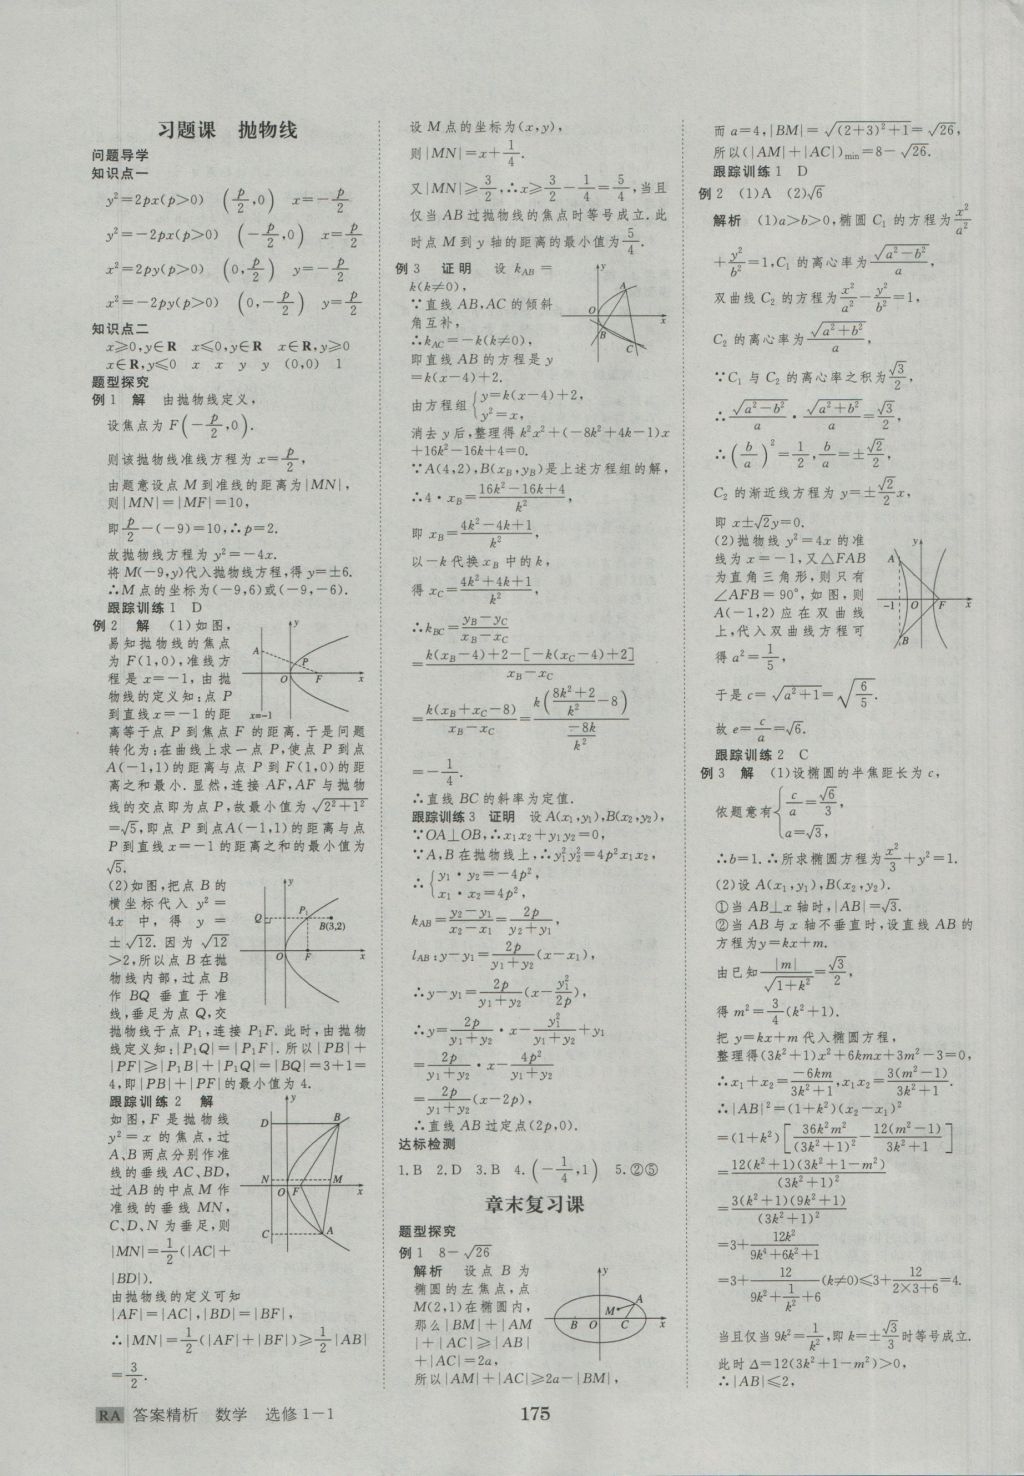 习题课 抛物线
问题导学
知识点一
y²=2px(p>0) (p/2,0) x=-p/2
y²=-2px(p>0) (-p/2,0) x=p/2
x²=2py(p>0) (0,p/2) y=-p/2
x²=-2py(p>0) (0,-p/2) y=p/2
知识点二
x⩾0,y∈R x⩽0,y∈R x∈R,y⩾0
x∈R,y⩽0 x x y y (0,0) 1
题型探究
例1 解 由抛物线定义,
设焦点为F(-p/2,0).
则该抛物线准线方程为x=p/2,
由题意设点M到准线的距离为|MN|,
则|MN|=|MF|=10,
即p/2-(-9)=10,∴p=2.
故抛物线方程为y²=-4x.
将M(-9,y)代入抛物线方程,得y=±6.
∴M点的坐标为(-9,6)或(-9,-6).
跟踪训练1 D
例2 解 (1)如图,
易知抛物线的焦点
为F(1,0),准线方
程是x=-1,由抛
物线的定义知:点P
到直线x=-1的距
离等于点P到焦点F的距离.于是问题
转化为:在曲线上求一点P,使点P到点
A(-1,1)的距离与点P到F(1,0)的距
离之和最小.显然,连接AF,AF与抛物
线的交点即为点P,故最小值为√(2²+1²)
=√5,即点P到点A(-1,1)的距离与点
P到直线x=-1的距离之和的最小值为
√5.
y
A
P
O
F
x
x=-1
(2)如图,把点B的
横坐标代入y²=
4x中,得y=
±√12.因为√12
>2,所以点B在抛
物线内部,过点B
作BQ垂直于准
线,垂足为点Q,交
抛物线于点P₁,连接P₁F.此时,由抛物
线定义知:|P₁Q|=|P₁F|.所以|PB|+
|PF|⩾|P₁B|+|P₁Q|=|BQ|=3+1=
4,即|PB|+|PF|的最小值为4.
y
Q
P₁
B(3,2)
O
F
x
跟踪训练2 解
如图,F是抛物线
y²=x的焦点,过
A、B两点分别作准
线的垂线AC、BD,
过AB的中点M作
准线的垂线MN,
C、D、N为垂足,则
|MN|=1/2(|AC|+
|BD|).
由抛物线的定义可知
|AF|=|AC|,|BD|=|BF|,
∴|MN|=1/2(|AF|+|BF|)⩾1/2|AB|
=3/2.
y
D
B
N
M
O
F
x
C
A
设M点的坐标为(x,y),
则|MN|=x+1/4.
又|MN|⩾3/2,∴x⩾3/2-1/4=5/4,当且
仅当AB过抛物线的焦点时等号成立.此
时点M到y轴的距离的最小值为5/4.
例3 证明 设kAB=
k(k≠0),
∵直线AB,AC的倾斜
角互补,
∴kAC=-k(k≠0),
即直线AB的方程是y
=k(x-4)+2.
y
A
O
B
C
x
由方程组{y=k(x-4)+2,
y²=x,
消去y后,整理得k²x²+(-8k²+4k-1)x
+16k²-16k+4=0.
∵A(4,2),B(xB,yB)是上述方程组的解,
∴4·xB=(16k²-16k+4)/k²,
即xB=(4k²-4k+1)/k²,
以-k代换xB中的k,
得xC=(4k²+4k+1)/k²,
∴kBC=(yB-yC)/(xB-xC)
=(k(xB-4)+2-[-k(xC-4)+2])/(xB-xC)
=k(xB+xC-8)/(xB-xC)=k((8k²+2)/k²-8)/(-8k/k²)
=-1/4.
∴直线BC的斜率为定值.
跟踪训练3 证明 设A(x₁,y₁),B(x₂,y₂),
∵OA⊥OB,∴x₁x₂+y₁y₂=0,
∵A,B在抛物线上,∴y₁²y₂²=4p²x₁x₂,
∴{y₁·y₂=-4p²,
x₁·x₂=4p²,
kAB=(y₂-y₁)/(x₂-x₁)=2p/(y₂+y₁),
lAB:y-y₁=2p/(y₁+y₂)(x-x₁),
∴y-y₁=2p/(y₁+y₂)(x-y₁²/2p),
∴y=2p/(y₁+y₂)·x-y₁²/(y₁+y₂)+y₁
=2p/(y₁+y₂)·x-4p²/(y₁+y₂)
=2p/(y₁+y₂)(x-2p),
∴直线AB过定点(2p,0).
达标检测
1.B 2.D 3.B 4.(-1/4,1) 5.②⑤
章末复习课
题型探究
例1 8-√26
解析 设点B为
椭圆的左焦点,点
M(2,1)在椭圆内,
那么|BM|+|AM
|+|AC|⩾|AB|
+|AC|=2a,
所以|AM|+|AC|⩾2a-|BM|,
y
M
A
B
O
C
x
而a=4,|BM|=√((2+3)²+1)=√26,
所以(|AM|+|AC|)min=8-√26.
跟踪训练1 D
例2 (1)A (2)√6
解析 (1)a>b>0,椭圆C₁的方程为x²/a²
+y²/b²=1,C₁的离心率为√(a²-b²)/a,
双曲线C₂的方程为x²/a²-y²/b²=1,
C₂的离心率为√(a²+b²)/a,
∵C₁与C₂的离心率之积为√3/2,
∴√(a²-b²)/a·√(a²+b²)/a=√3/2,
∴(b/a)²=1/2,b/a=±√2/2,
C₂的渐近线方程为y=±√2/2x,
即x±√2y=0.
(2)抛物线y²=4x的准
线为x=-1,又△FAB
为直角三角形,则只有
∠AFB=90°,如图,则
A(-1,2)应在双曲线
上,代入双曲线方程可
得a²=1/5,
于是c=√(a²+1)=√(6/5).
故e=c/a=√6.
y
A
-1
O
F
x
B
跟踪训练2 C
例3 解 (1)设椭圆的半焦距长为c,
依题意有{c/a=√6/3,
a=√3,
∴b=1.∴所求椭圆方程为x²/3+y²=1.
(2)设A(x₁,y₁),B(x₂,y₂).
①当AB⊥x轴时,|AB|=√3.
②当AB与x轴不垂直时,设直线AB的
方程为y=kx+m.
由已知|m|/√(1+k²)=√3/2,
得m²=3/4(k²+1).
把y=kx+m代入椭圆方程,
整理得(3k²+1)x²+6kmx+3m²-3=0,
∴x₁+x₂=-6km/(3k²+1),x₁x₂=3(m²-1)/(3k²+1).
∴|AB|²=(1+k²)(x₂-x₁)²
=(1+k²)[36k²m²/(3k²+1)²-12(m²-1)/(3k²+1)]
=12(k²+1)(3k²+1-m²)/(3k²+1)²
=3(k²+1)(9k²+1)/(3k²+1)²
=3+12k²/(9k⁴+6k²+1)
=3+12/(9k²+1/k²+6)(k≠0)⩽3+12/(2×3+6)=4.
当且仅当9k²=1/k²,即k=±√3/3时等号成立.
此时Δ=12(3k²+1-m²)>0,
∴|AB|⩽2,
RA 答案精析 数学 选修1-1
175